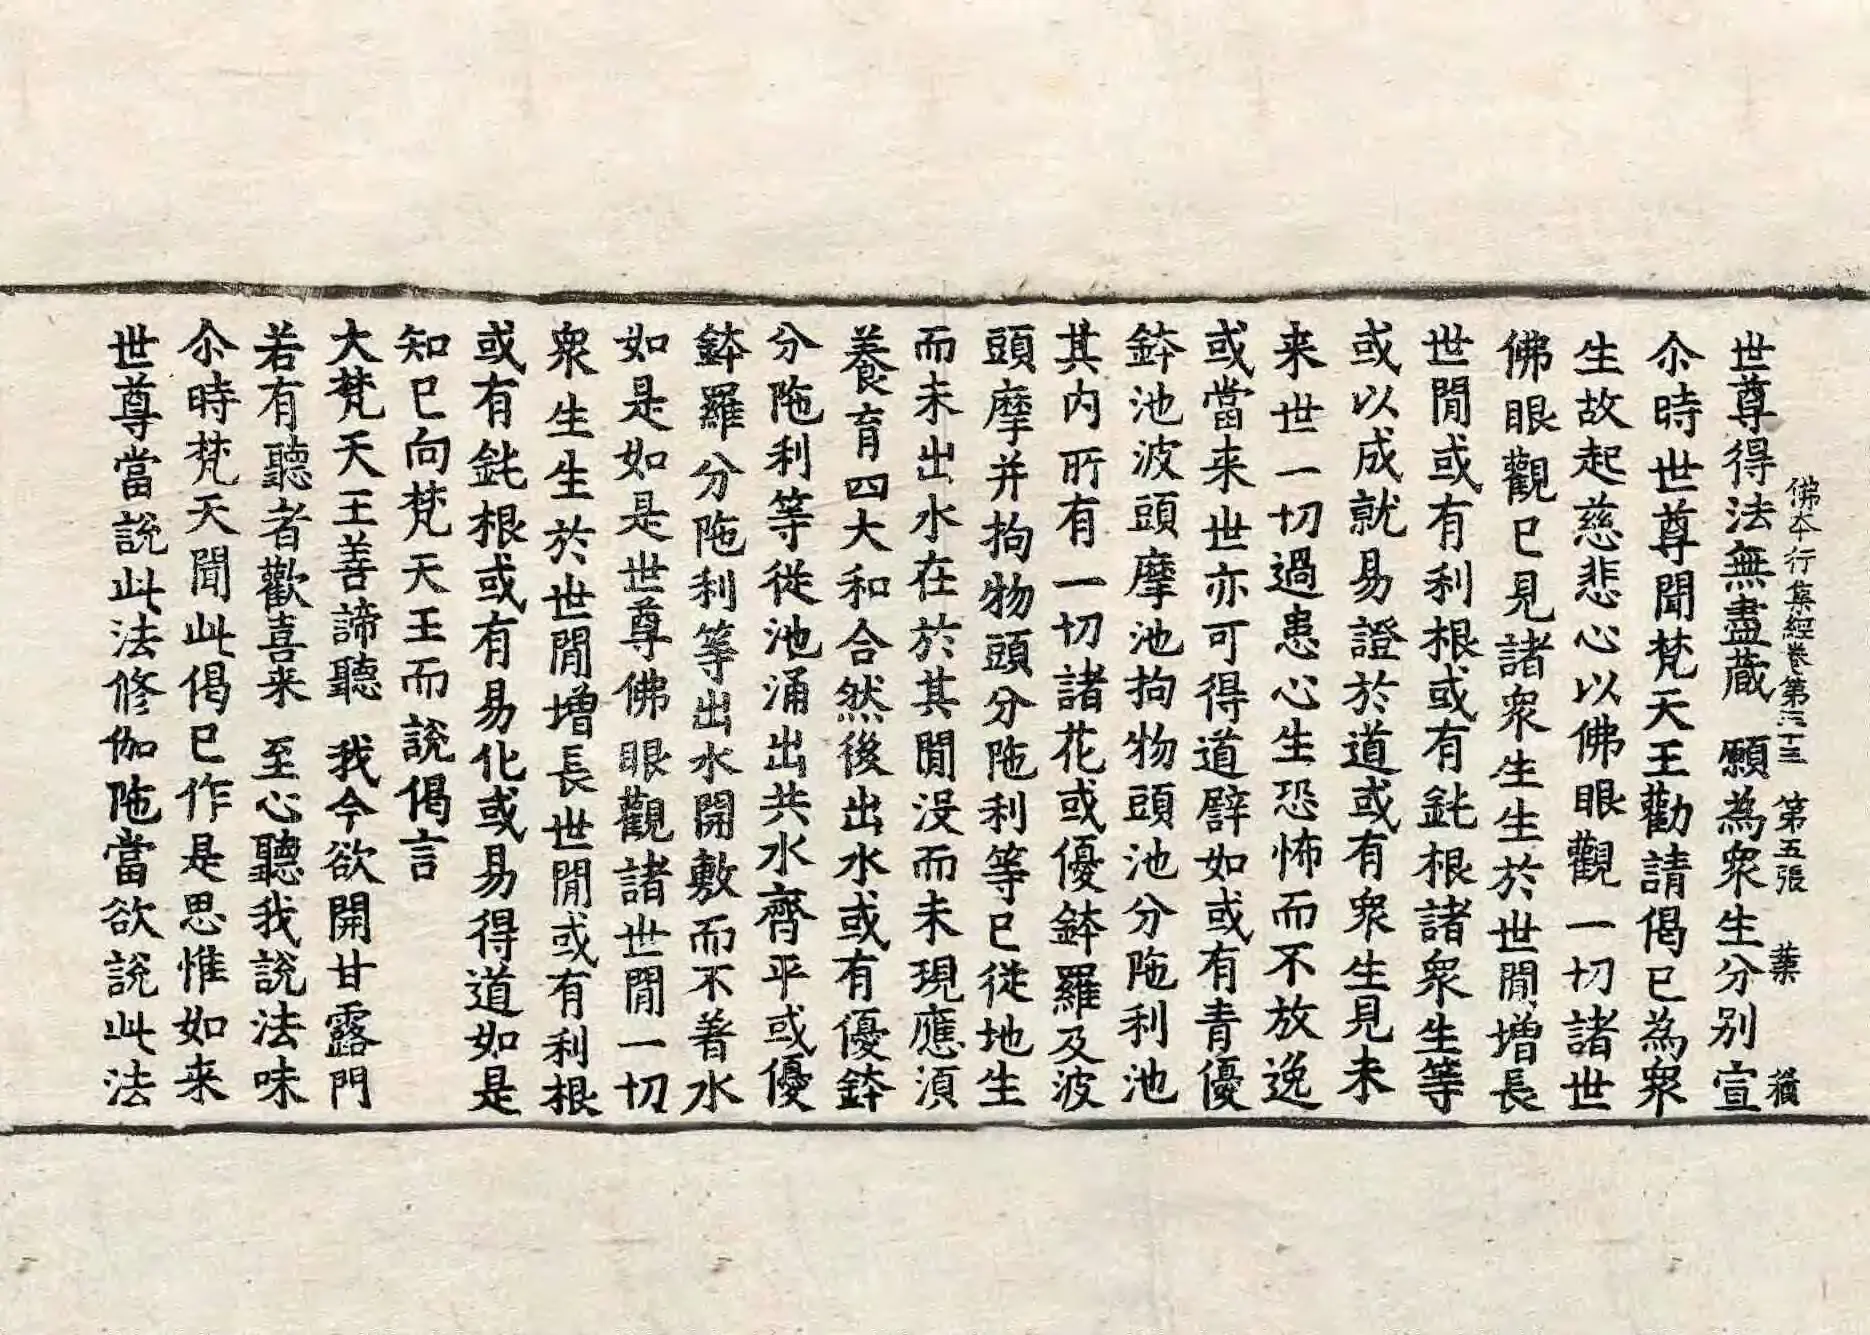 佛本行集經卷第三十三 第五張 葉 積
世尊得法無盡蔵 願為衆生分別宣
尒時世尊聞梵天王勸請偈已為衆
生故起慈悲心以佛眼觀一切諸世
佛眼觀已見諸衆生生於世閒增長
世閒或有利根或有鈍根諸衆生等
或以成就易證於道或有衆生見未
来世一切過患心生恐怖而不放逸
或當来世亦可得道譬如或有青優
鉢池波頭摩池拘物頭池分陁利池
其内所有一切諸花或優鉢羅及波
頭摩并拘物頭分陁利等已從地生
而未出水在於其閒没而未現應湏
養育四大和合然後出水或有優鉢
分陁利等從池涌出共水齊平或優
鉢羅分陁利等出水開敷而不著水
如是如是世尊佛眼觀諸世閒一切
衆生生於世閒增長世閒或有利根
或有鈍根或有易化或易得道如是
知已向梵天王而說偈言
大梵天王善諦聽 我今欲開甘露門
若有聽者歡喜来 至心聽我說法味
尒時梵天聞此偈已作是思惟如来
世尊當說此法修伽陁當欲說此法